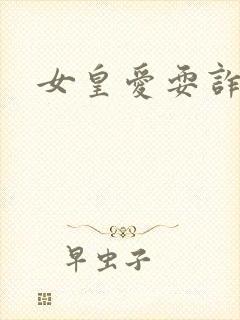 女皇愛耍詐
早虫子